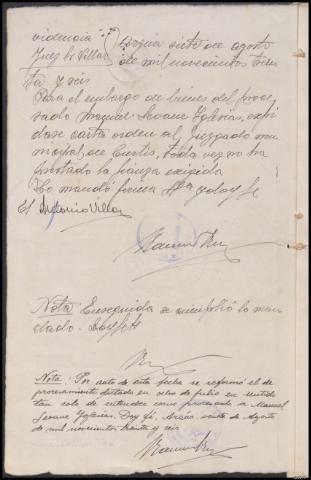 videncia
Juez Sr Villar
Arzúa siete de agosto
de mil novecientos trein
ta y seis
Para el embargo de bienes del proce
sado Manuel Seoane Iglesias, expí
dase carta orden al Juzgado mu
nicipal de Curtis, toda vez no ha
prestado la fianza exigida
Lo mandó y firma Sª y doy fe
Antonio Villar
Nota Enseguida se cumplió lo man
dado. Doy fe
Nota: Por auto de esta fecha se reformó el de
procesamiento dictado en ocho de julio en sentido
tan solo de entender como procesado a Manuel
Seoane Iglesias. Doy fé, Arzúa, siete de Agosto
de mil novecientos treinta y seis